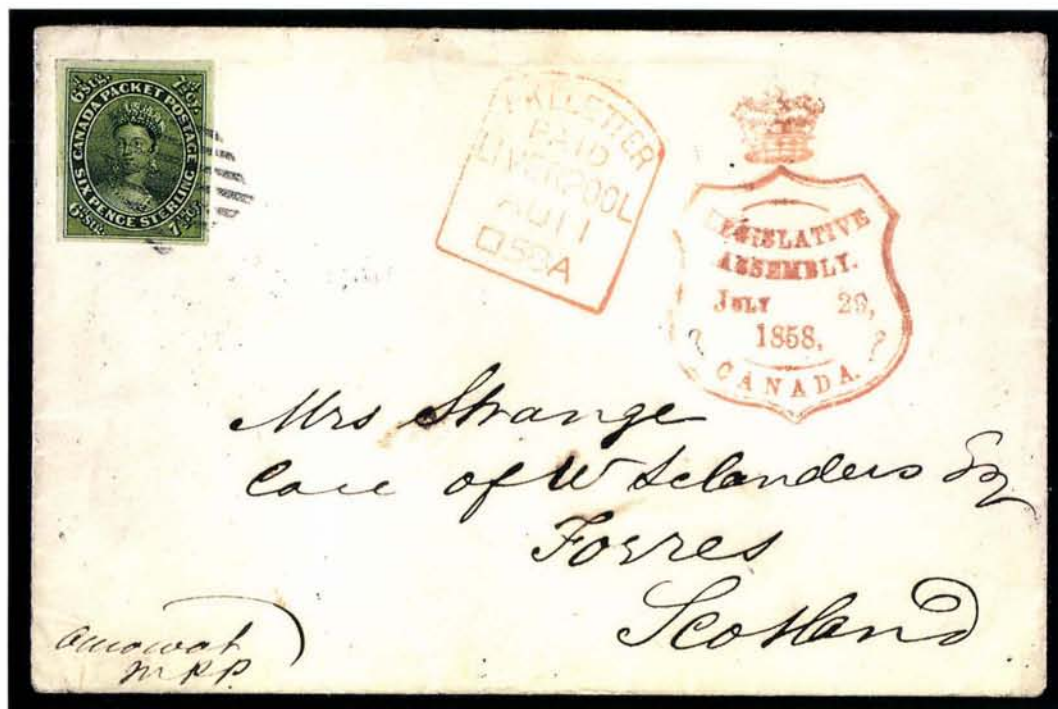 6d Stg. 7½d Cy.
CANADA PACKET POSTAGE
SIX PENCE STERLING
6d Stg. 7½d Cy.
PKT. LETTER
PAID
LIVERPOOL
AU 11
58 A
LEGISLATIVE
ASSEMBLY.
JULY 29,
1858.
CANADA.
Mrs Strange
Care of W Sclanders Esq
Forres
Scotland
OMowat
M.P.P.